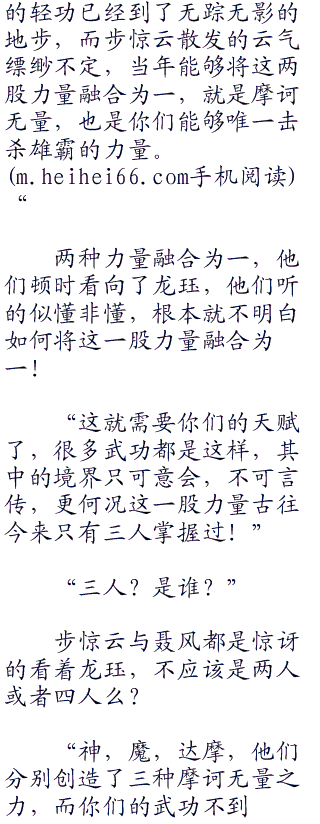 的轻功已经到了无踪无影的
地步，而步惊云散发的云气
缥缈不定，当年能够将这两
股力量融合为一，就是摩诃
无量，也是你们能够唯一击
杀雄霸的力量。
(m.heihei66.com手机阅读)
“
两种力量融合为一，他
们顿时看向了龙珏，他们听
的似懂非懂，根本就不明白
如何将这一股力量融合为
一！
“这就需要你们的天赋
了，很多武功都是这样，其
中的境界只可意会，不可言
传，更何况这一股力量古往
今来只有三人掌握过！”
“三人？是谁？”
步惊云与聂风都是惊讶
的看着龙珏，不应该是两人
或者四人么？
“神，魔，达摩，他们
分别创造了三种摩诃无量之
力，而你们的武功不到